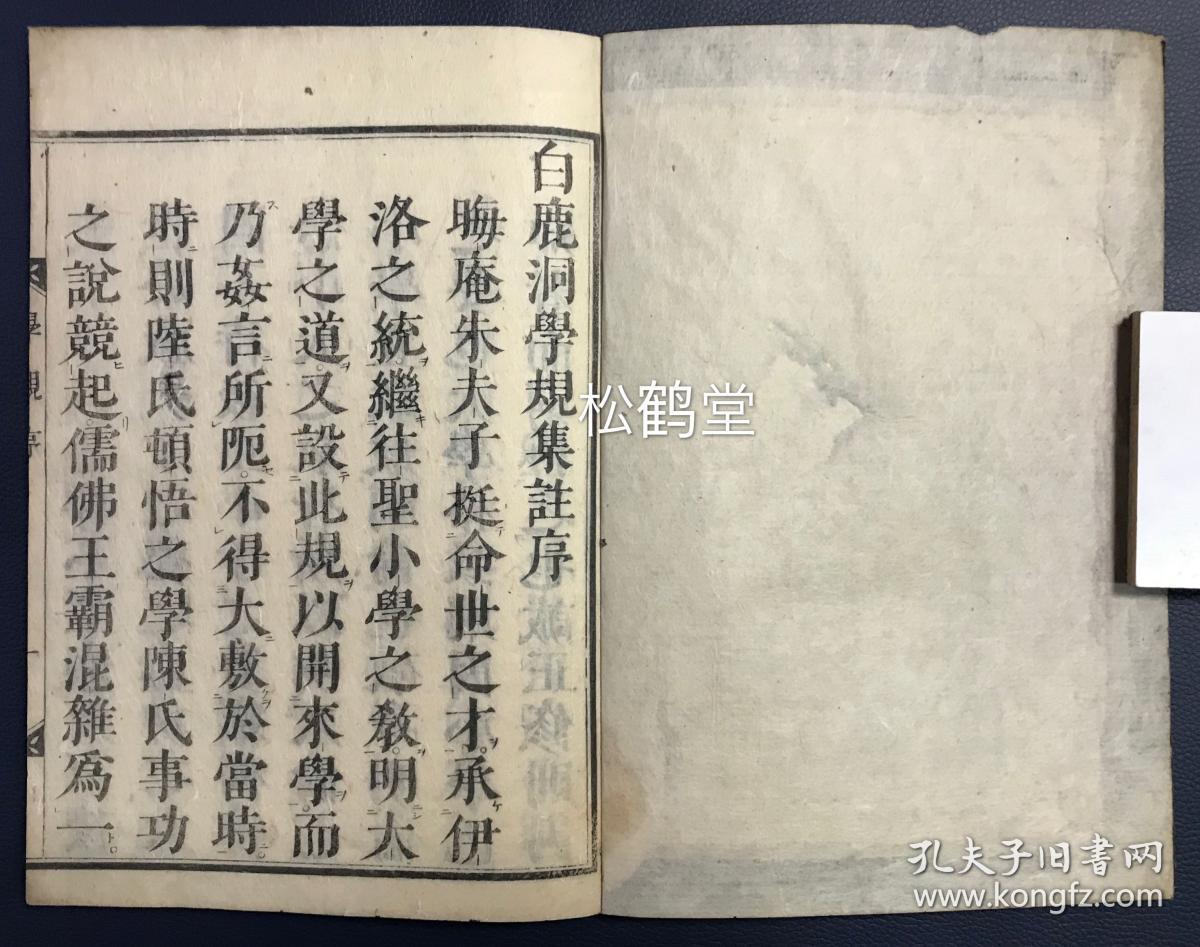 白鹿洞學規集註序
晦庵朱夫子挺命世之才承伊
洛之統繼往聖小學之教明大
學之道又設此規以開來學而
乃姦言所阨不得大敷於當時
時則陸氏頓悟之學陳氏事功
之說競起儒佛王霸混雜爲一
學規序
一
松鹤堂
孔夫子旧书网
www.kongfz.com